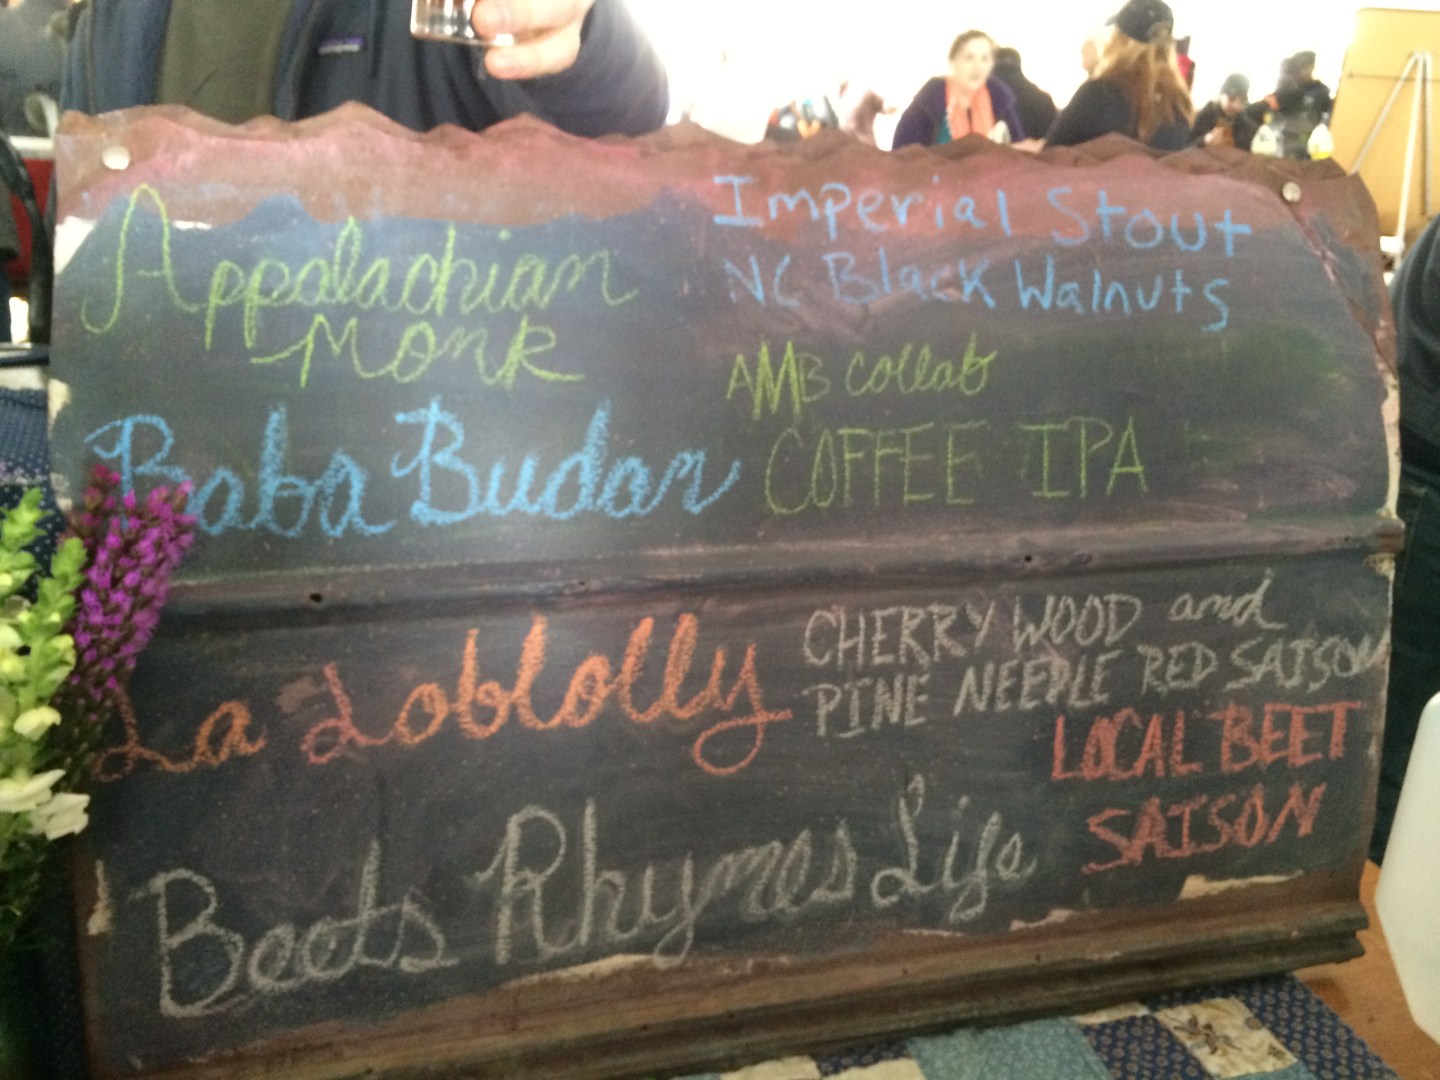 Appalachian
Monk
Imperial Stout
NC Black Walnuts
Baba Budan
AMB collab
COFFEE IPA
La Loblolly
CHERRY WOOD and
PINE NEEDLE RED SAISON
Beets Rhymes Life
LOCAL BEET
SAISON